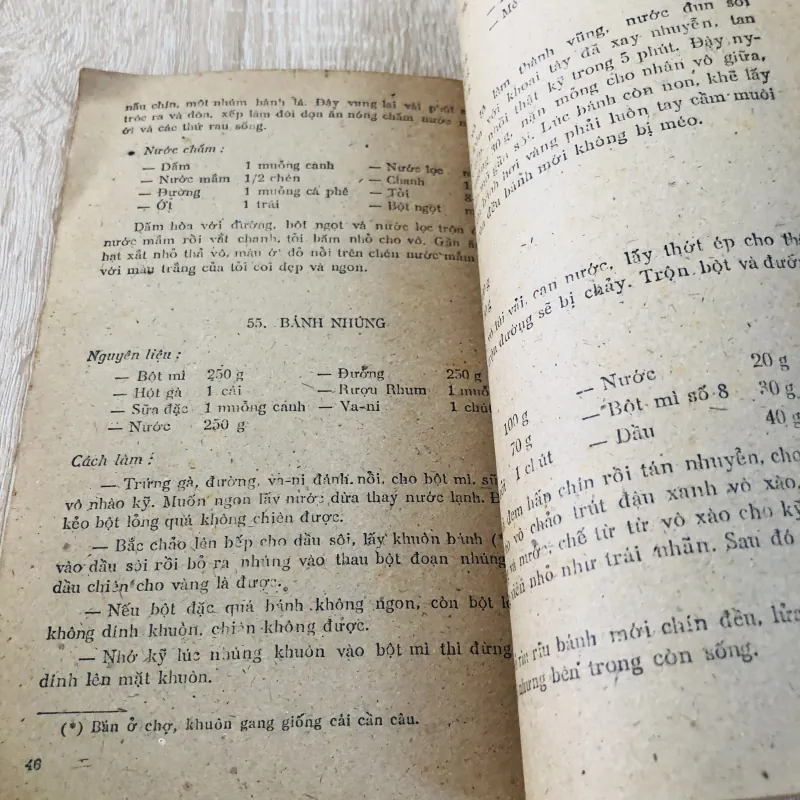 nấu chín, một nhúm bánh lá. Đậy vung lại vài phút
tróc ra và dòn, xếp làm đôi dọn ăn nóng chấm nước
ới và các thứ rau sống.
Nước chấm :
— Dấm 1 muỗng canh — Nước lọc
— Nước mắm 1/2 chén — Chanh
— Đường 1 muỗng cà phê — Tỏi
— Ớt 1 trái — Bột ngọt
Dấm hòa với đường, bột ngọt và nước lọc trộn
nước mắm rồi vắt chanh, tỏi bằm nhỏ cho vô. Gần
hạt xắt nhỏ thả vô, màu ớt đỏ nổi trên chén nước mắm
với màu trắng của tỏi coi đẹp và ngon.
55. BÁNH NHÚNG
Nguyên liệu :
— Bột mì 250 g — Đường 250 g
— Hột gà 1 cái — Rượu Rhum 1
— Sữa đặc 1 muỗng canh — Va-ni 1 chút
— Nước 250 g
Cách làm :
— Trứng gà, đường, va-ni đánh nổi, cho bột mì,
vô nhào kỹ. Muốn ngon lấy nước dừa thay nước lạnh.
kẻo bột lỏng quá không chiên được.
— Bắc chảo lên bếp cho dầu sôi, lấy khuôn bánh (*
vào dầu sôi rồi bỏ ra nhúng vào thau bột đoạn nhúng
dầu chiên cho vàng là được.
— Nếu bột đặc quá bánh không ngon, còn bột
không dính khuôn, chiên không được.
— Nhớ kỹ lúc nhúng khuôn vào bột mì thì đừng
dính lên mặt khuôn.
(*) Bán ở chợ, khuôn gang giống cái cần câu.
46
làm thành vũng, nước đun sôi
khoai tây đã xay nhuyễn, tan
nhồi thật kỹ trong 5 phút. Đậy ny-
30 g, nặn mỏng cho nhân vô giữa,
sôi. Lúc bánh còn non, khẽ lấy
bánh hơi vàng phải luôn tay cầm muôi
đều bánh mới không bị méo.
vải, cạn nước, lấy thớt ép cho
đường sẽ bị chảy. Trộn bột và
100 g — Nước 20 g
70 g — Bột mì số 8 30 g
1 chút — Dầu 40 g
đem hấp chín rồi tán nhuyễn, cho
vô chảo trút đậu xanh vô xào,
nước, chế từ từ vô xào cho kỹ
nhỏ như trái nhãn. Sau đó
riu riu bánh mới chín đều, lửa
nhưng bên trong còn sống.